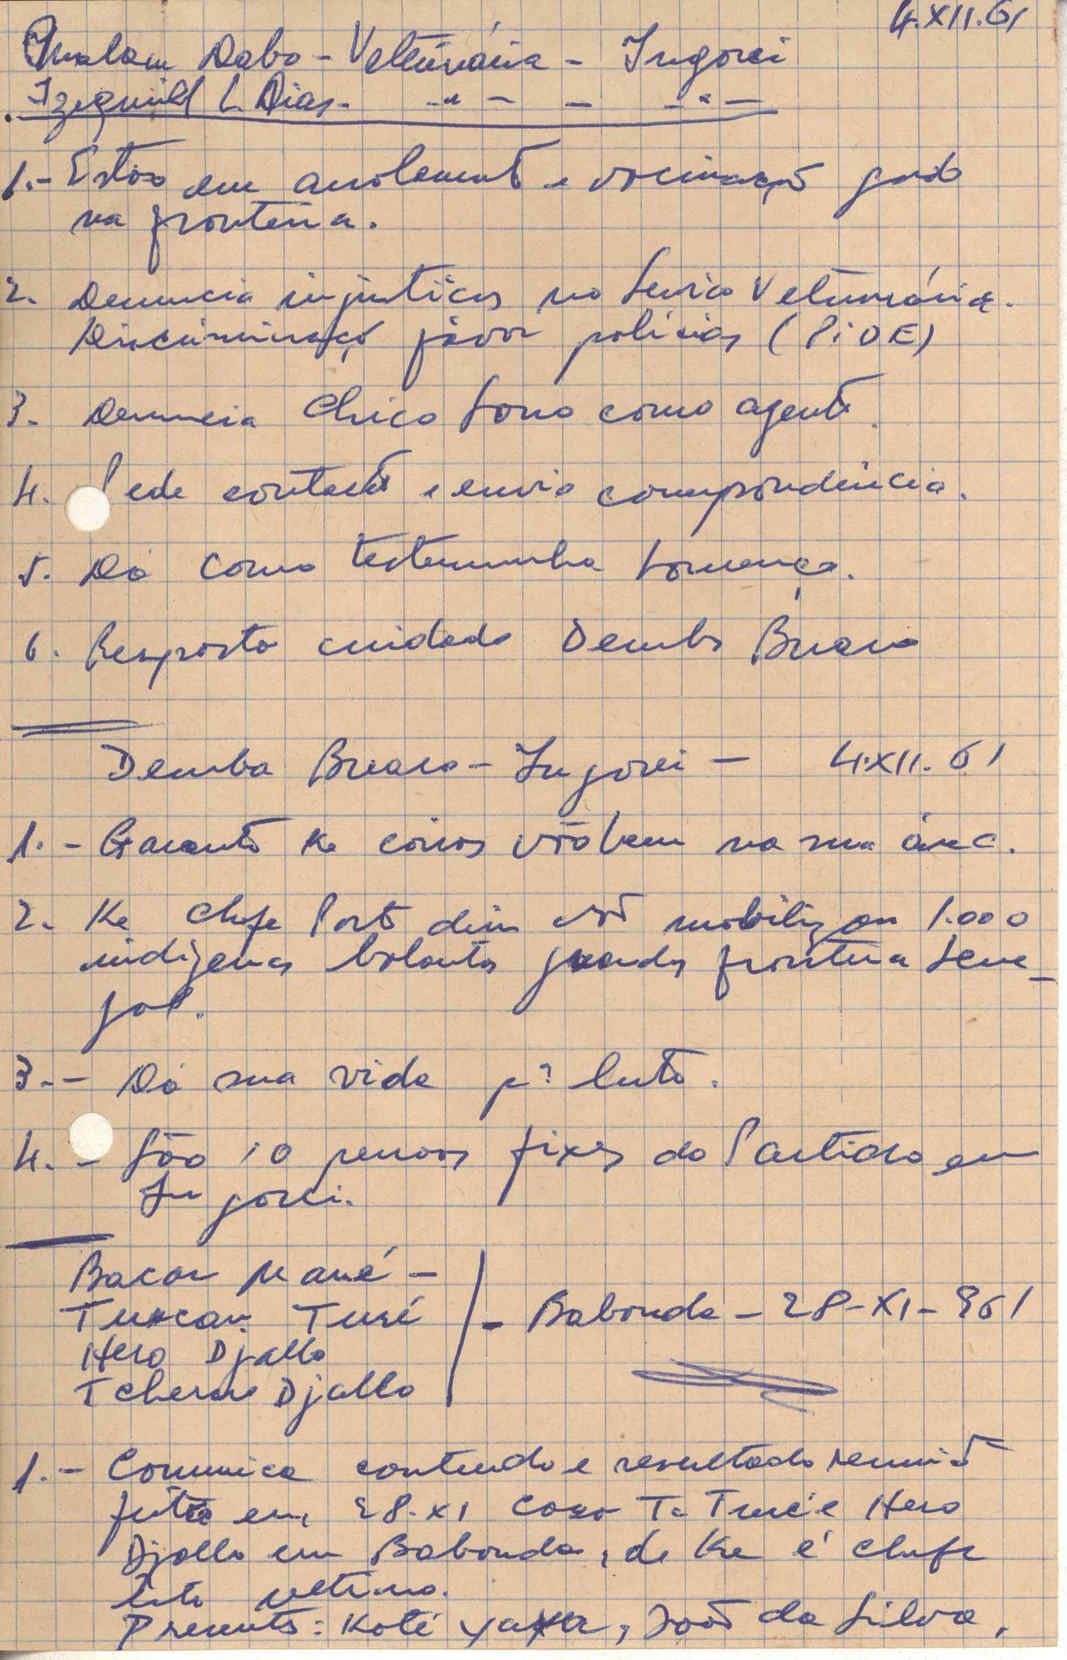 4.XII.61
Malam Dabo - Veterinária - Ingorei
Izequiel L. Dias - -"- - -"-
1.- Estão em arrolamento e vacinação gado
na fronteira.
2. Denuncia injustiças no Serviço Veterinária.
Discriminação favor polícias (PIDE)
3. Denuncia Chico Sono como agente.
4. Pede contacto e envio correspondência.
5. Dá como testemunha
6. Resposta cuidado Demba Buaro
Demba Buaro - Ingorei - 4.XII.61
1.- Garante ke coisas vão bem na sua área.
2. Ke Chefe Posto disse vão mobilizar 1.000
indígenas balantas guarda fronteira Sene-
gal.
3.- Dá sua vida pª luta.
4.- São 10 pessoas fixes do Partido em
Ingorei.
Bacar Mané -
Tuncan Turé
Hero Djallo
Tcherno Djallo
- Babonda - 28-XI-961
1.- Comunica conteudo e resultado reunião
feita em 28.XI casa T. Turé e Hero
Djallo em Babonda, de ke é chefe
este último.
Presentes: Koté, João da Silva,